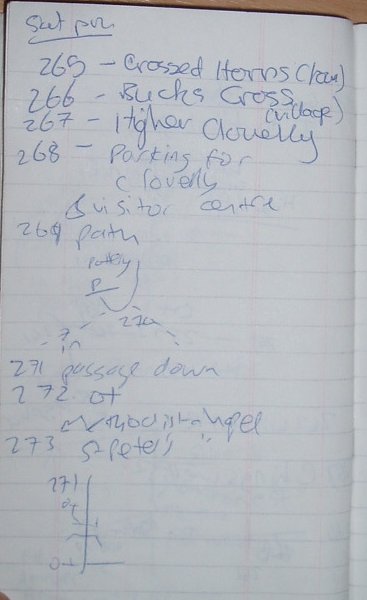 Sat pm
265 - Crossed Horns (
266 - Bucks Cross
(village)
267 - Higher Clovelly
268 - Parking for
Clovelly
& visitor centre
269 path
pottery
P
270
?
in
271 passage down
272 of
Methodist chapel
273 St Peter's "
271
0